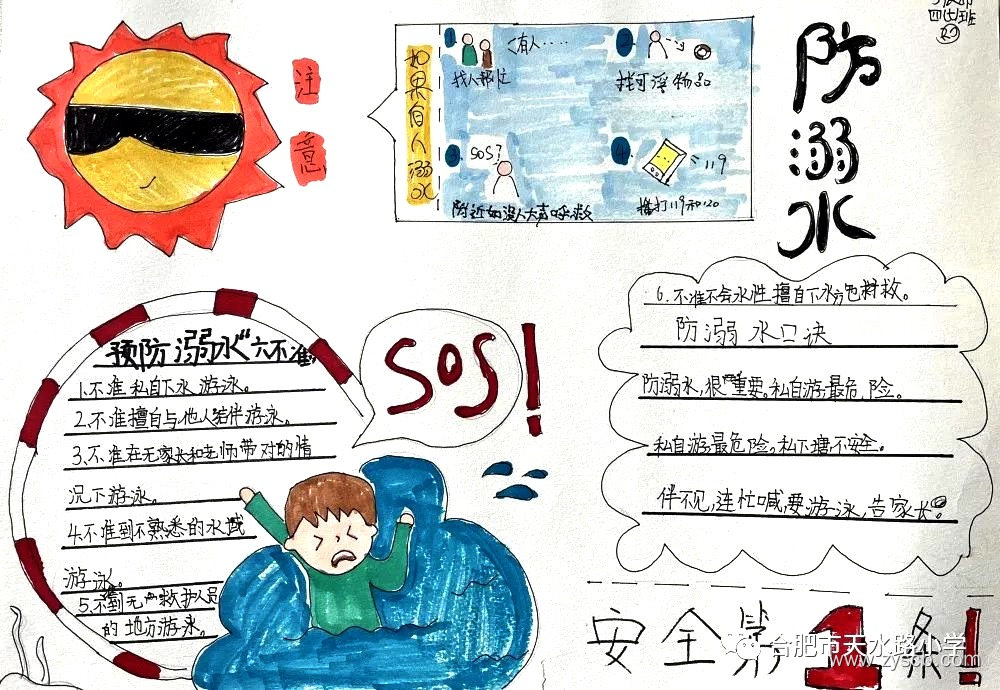 四(七)班
注
意
如果有人溺水
1.
有人.....
找人帮忙
2.
找可浮物品
3.
SOS?
附近如没人大声呼救
4.
119
拨打119和120
防溺水
预防溺水"六不准"
1.不准私自下水游泳。
2.不准擅自与他人结伴游泳。
3.不准在无家长和老师带对的情
况下游泳。
4.不准到不熟悉的水域
游泳。
5.不到无救护人员
的地方游泳。
SOS!
6.不准不会水性擅自下水施救。
防溺水口诀
防溺水,很重要。私自游,最危险。
私自游,最危险。私下塘,不安全。
伴不见,连忙喊,要游泳,告家长。
安全第1条!
合肥市天水路小学